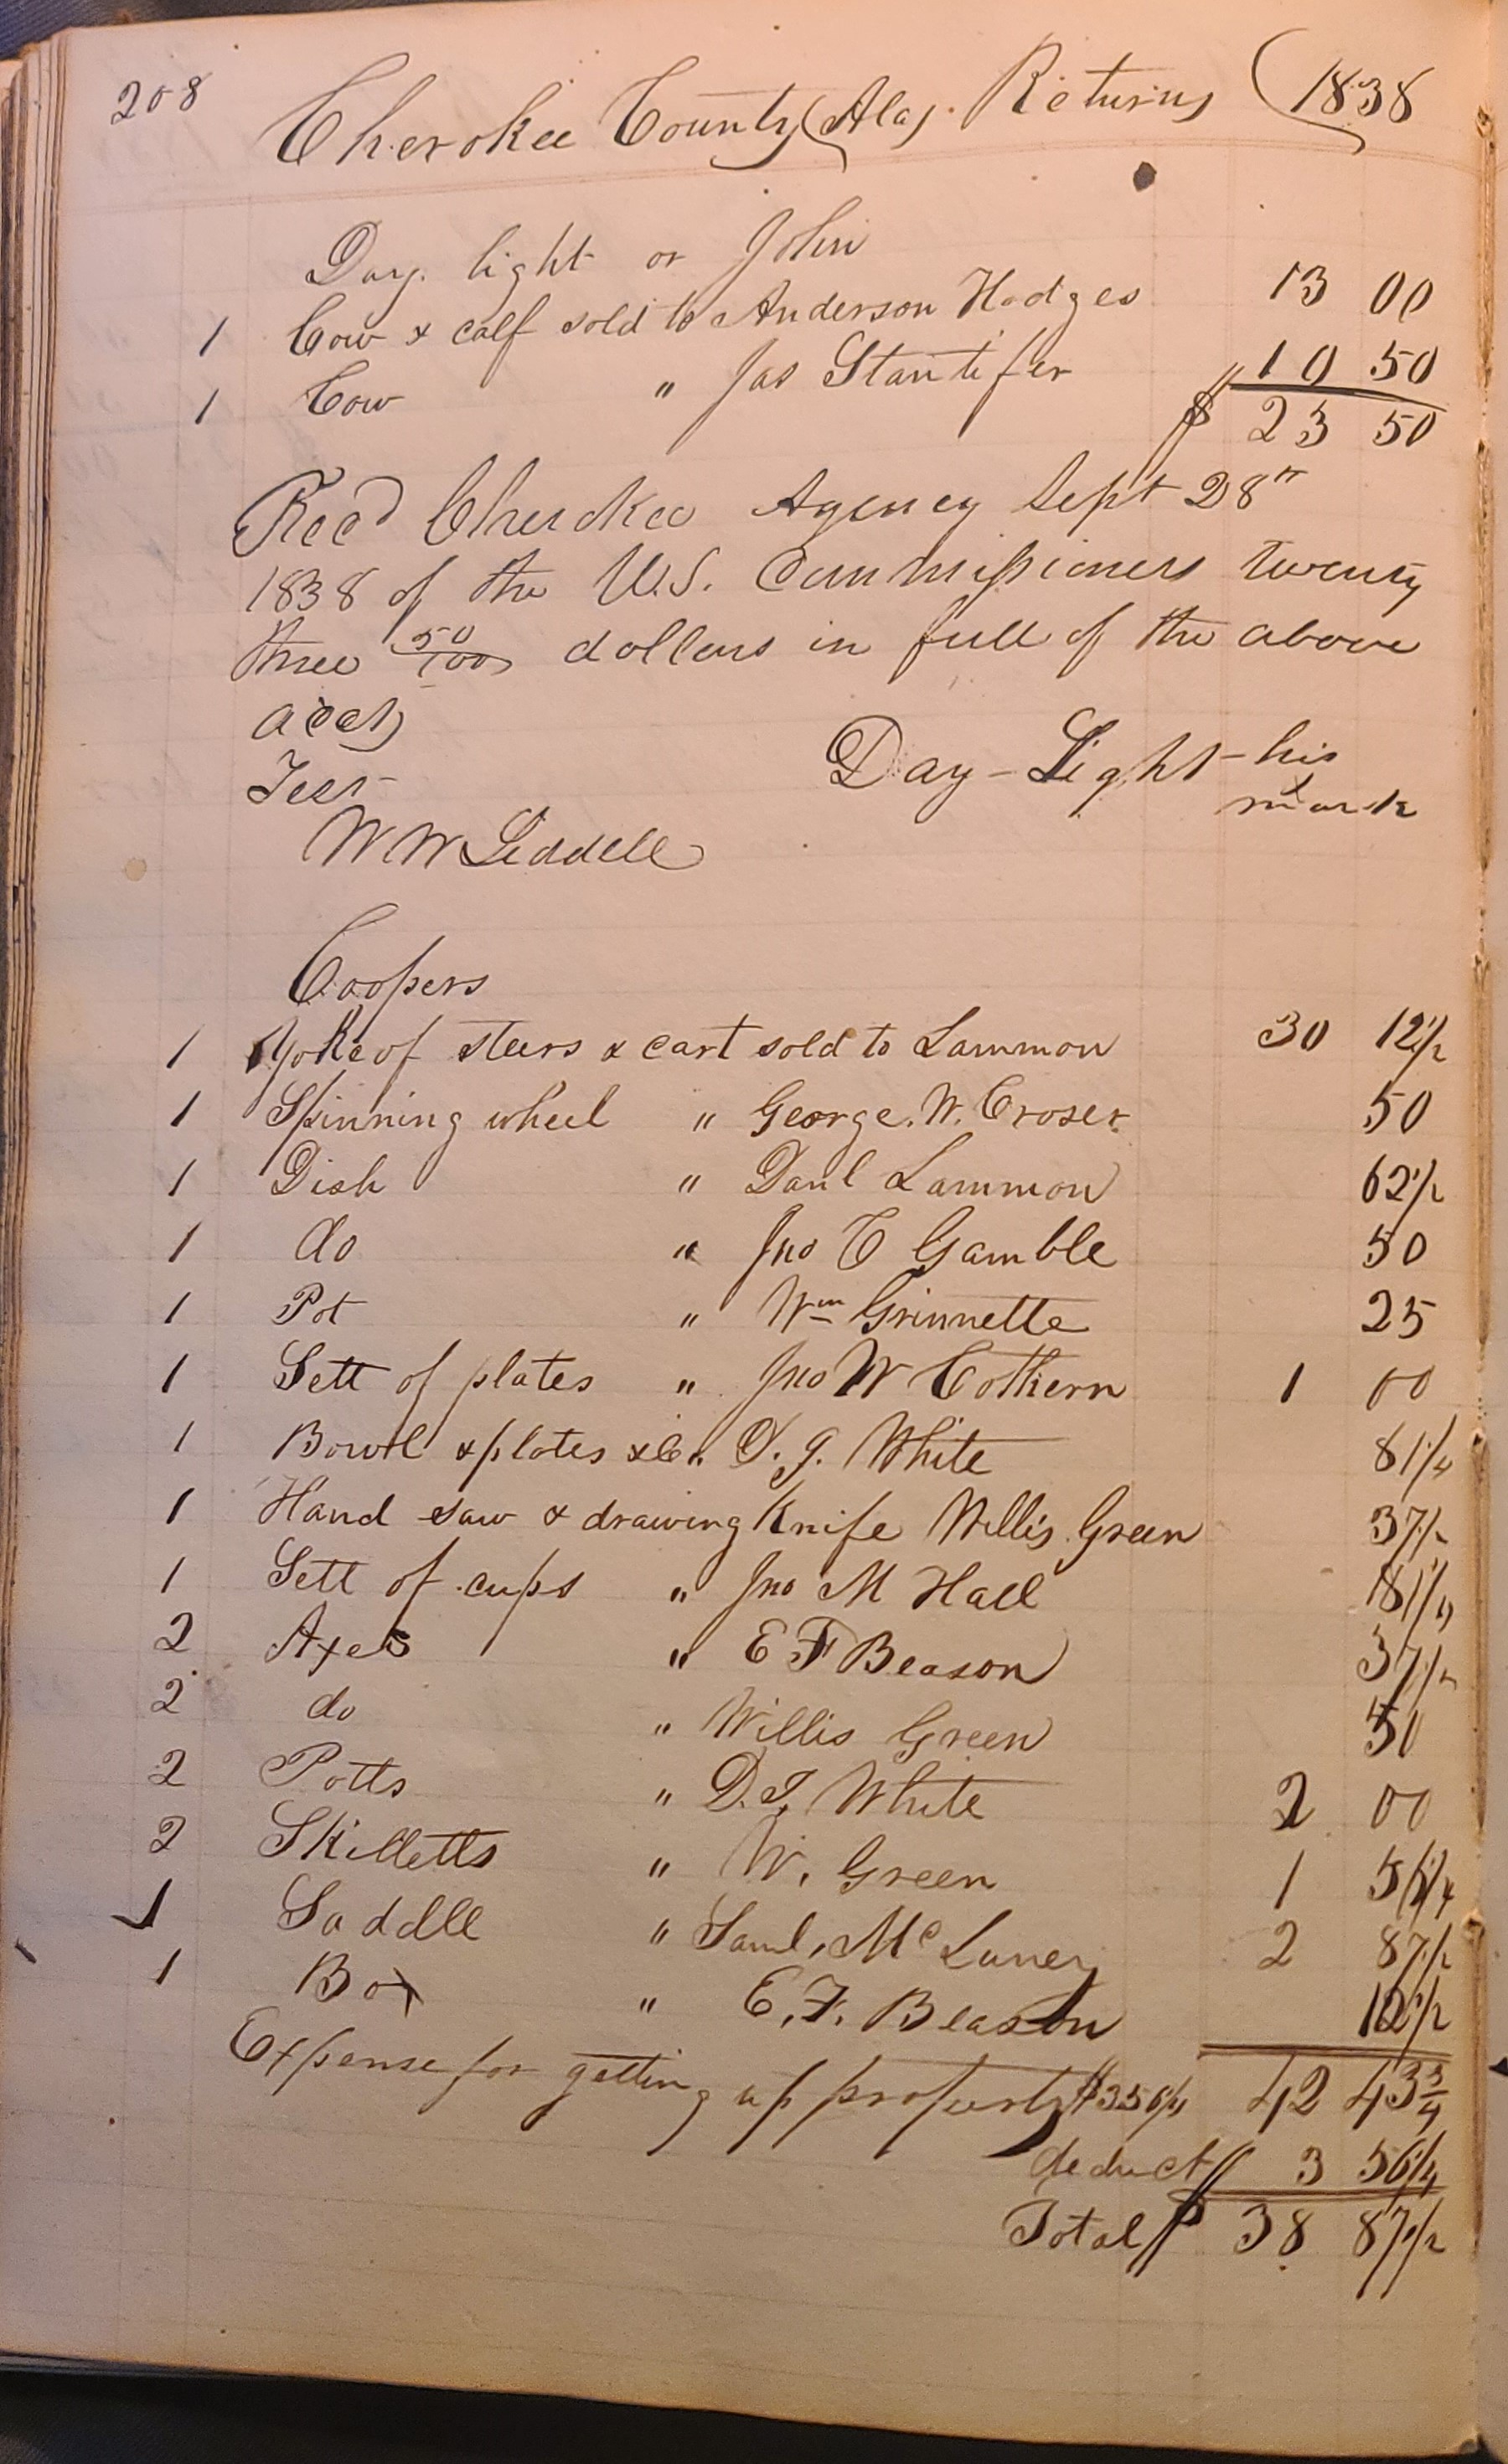 208 Cherokee County (Ala). Returns (1838
Day light or John
1 Cow & calf sold to Anderson Hodges 13 00
1 Cow " Jas Stantifer 10 50
$ 23 50
Recd Cherokee Agency Sept 28"
1838 of the U.S. Commissioners twenty
three 50/100 dollars in full of the above
acct
Test Day-Light his x mark
W W Liddell
Coopers
1 Yoke of steers & cart sold to Lammon 30 12 1/2
1 Spinning wheel " George. W. Croser 50
1 Dish " Danl Lammon 62 1/2
1 do " Jno C Gamble 50
1 Pot " Wm Grinnette 25
1 Sett of plates " Jno W Cothern 1 00
1 Bowl & plates &c " D. J. White 81 1/4
1 Hand saw & drawing Knife Willis Green 37 1/2
1 Sett of cups " Jno M Hall 81 1/4
2 Axes " E F Beason 37 1/2
2 do " Willis Green 50
2 Potts " D. J. White 2 00
2 Skilletts " W. Green 1 56 1/4
1 Saddle " Saml. Mc Luney 2 87 1/2
1 Box " E. F. Beason 12 1/2
Expense for getting up property $3 56 1/4 42 43 3/4
deduct 3 56 1/4
Total $ 38 87 1/2